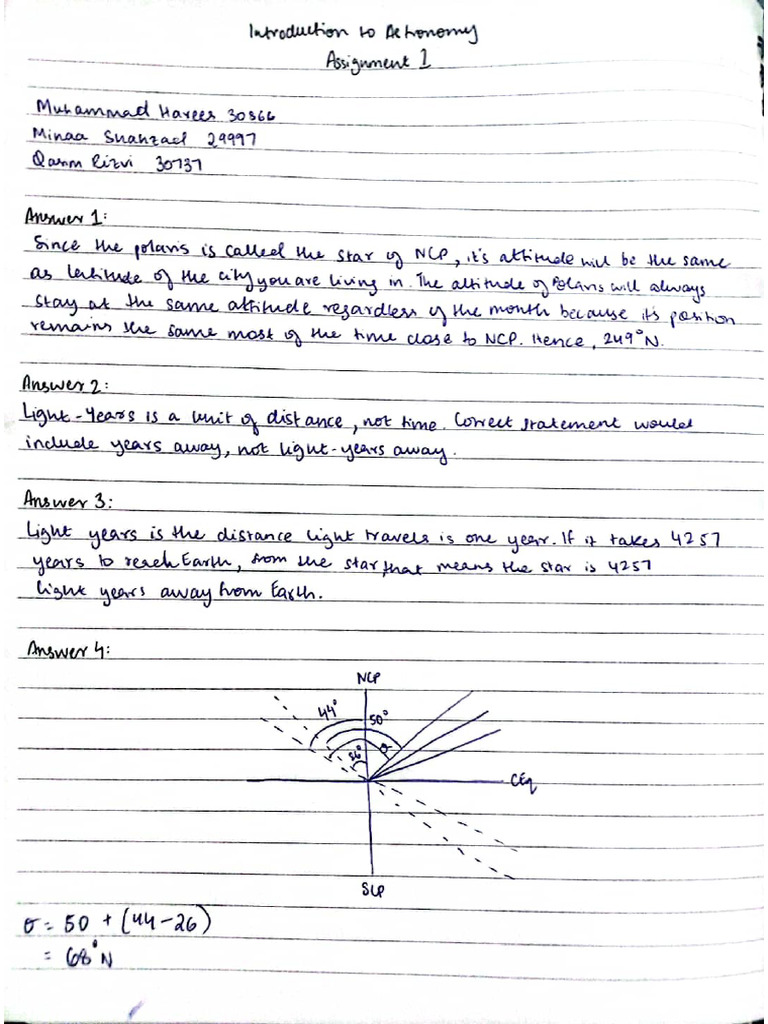 Introduction to Astronomy
Assignment 1
Muhammad Harees 30866
Minaa Shahzad 29997
Qasim Rizvi 30737
Answer 1:
Since the polaris is called the star of NCP, it's altitude will be the same
as latitude of the city you are living in. The altitude of Polaris will always
stay at the same altitude regardless of the month because its position
remains the same most of the time close to NCP. Hence, 249°N.
Answer 2:
Light-Years is a unit of distance, not time. Correct statement would
include years away, not light-years away.
Answer 3:
Light years is the distance light travels is one year. If it takes 4257
years to reach Earth, from the star, that means the star is 4257
light years away from Earth.
Answer 4:
NCP
44°
50°
θ
CEq
SCP
θ = 50 + (44-26)
= 68°N